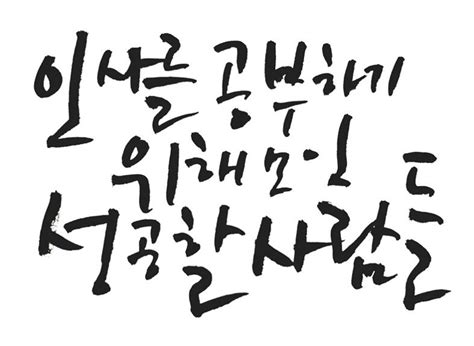 인사를 공부하기
위해 모인
성공할 사람들